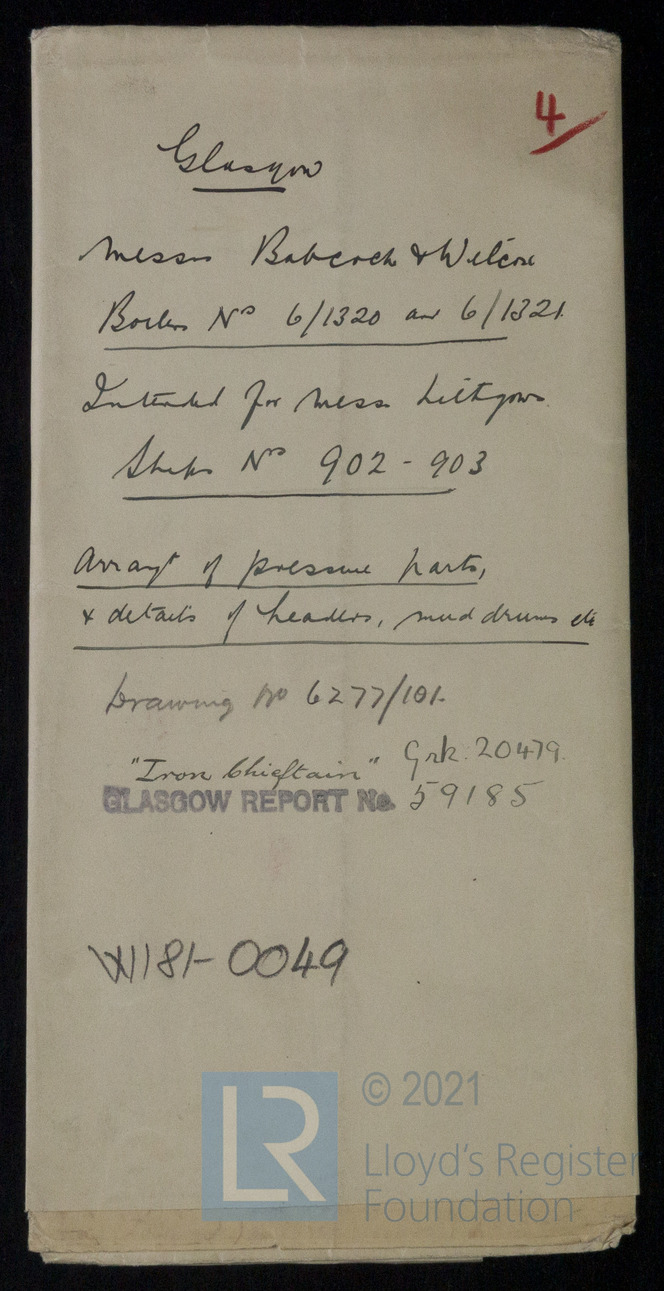 4
Glasgow
Messrs Babcock & Wilcox
Boilers Nos 6/1320 and 6/1321
Intended for Messrs Lithgows
Ships Nos 902 - 903
Arrangt of pressure parts,
& details of headers, mud drums etc
Drawing No 6277/101.
"Iron Chieftain" Grk. 20479.
GLASGOW REPORT No. 59185
W181-0049
LR
© 2021
Lloyd's Register
Foundation